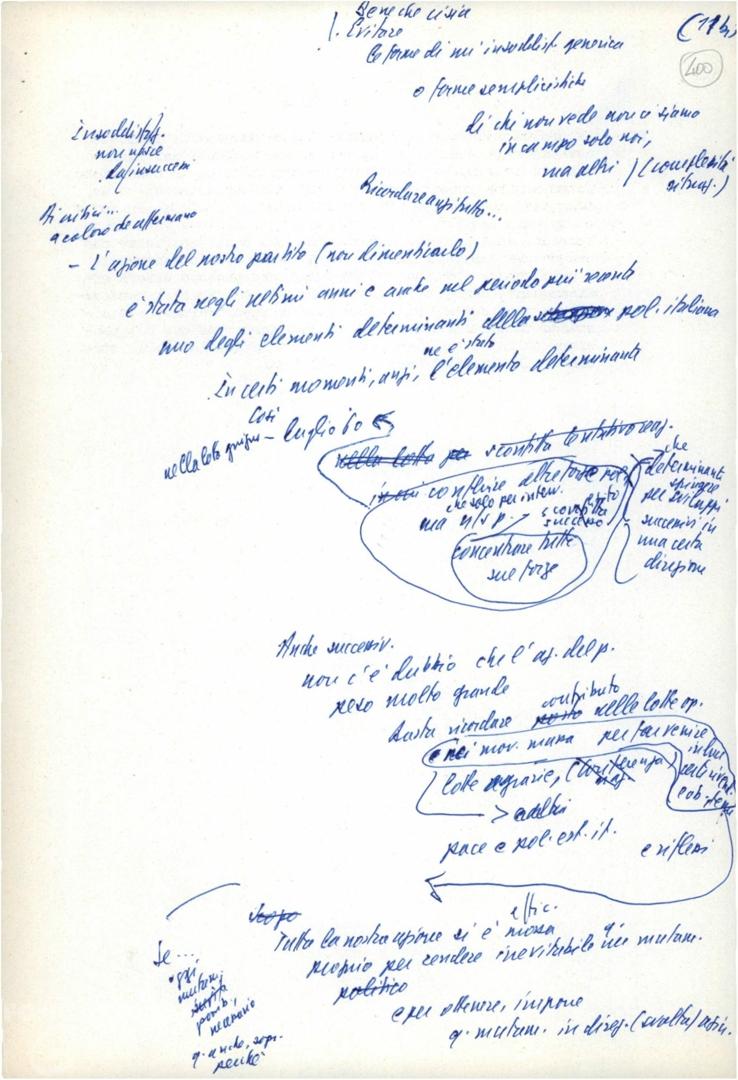 Bene che ci sia
1. Evitare
(11b)
400
le forme di un'insoddisf. generica
o forme semplicistiche
di chi non vede non ci siamo
in campo solo noi,
ma altri / (complessità
situaz.)
Insoddisfaz.
non nasce
da insuccessi
Ricordare anzitutto...
Ai critici...
a coloro che affermano
– L'azione del nostro partito (non dimenticarlo)
è stata negli ultimi anni e anche nel periodo più recente
uno degli elementi determinanti della pol. italiana
ne è stato
In certi momenti, anzi, l'elemento determinante
Così
nella lotta – luglio '60
nella lotta per sconfitta tentativo reaz.
confluire altre forze
che solo per interv.
ma n/s p.
sconfitta
successo
concentrare tutte
sue forze
che
determinanti
spingere
per sviluppi
successivi in
una certa
direzione
Anche successiv.
non c'è dubbio che l'az. del p.
peso molto grande
contributo
Basta ricordare peso nelle lotte op.
e nei mov. massa per far venire
in luce
certi
lotte agrarie, (conferenza
> adibi
pace e pol. est. it.
e riflessi
scopo
effic.
Tutta la nostra azione si è mossa
proprio per rendere inevitabile un mutam.
politico
e per ottenere, imporre
q. mutam. in direz. (svolta) a sin.
Se...
oggi
mutam.
possib.,
necessario
q. anche, sopr.
perché